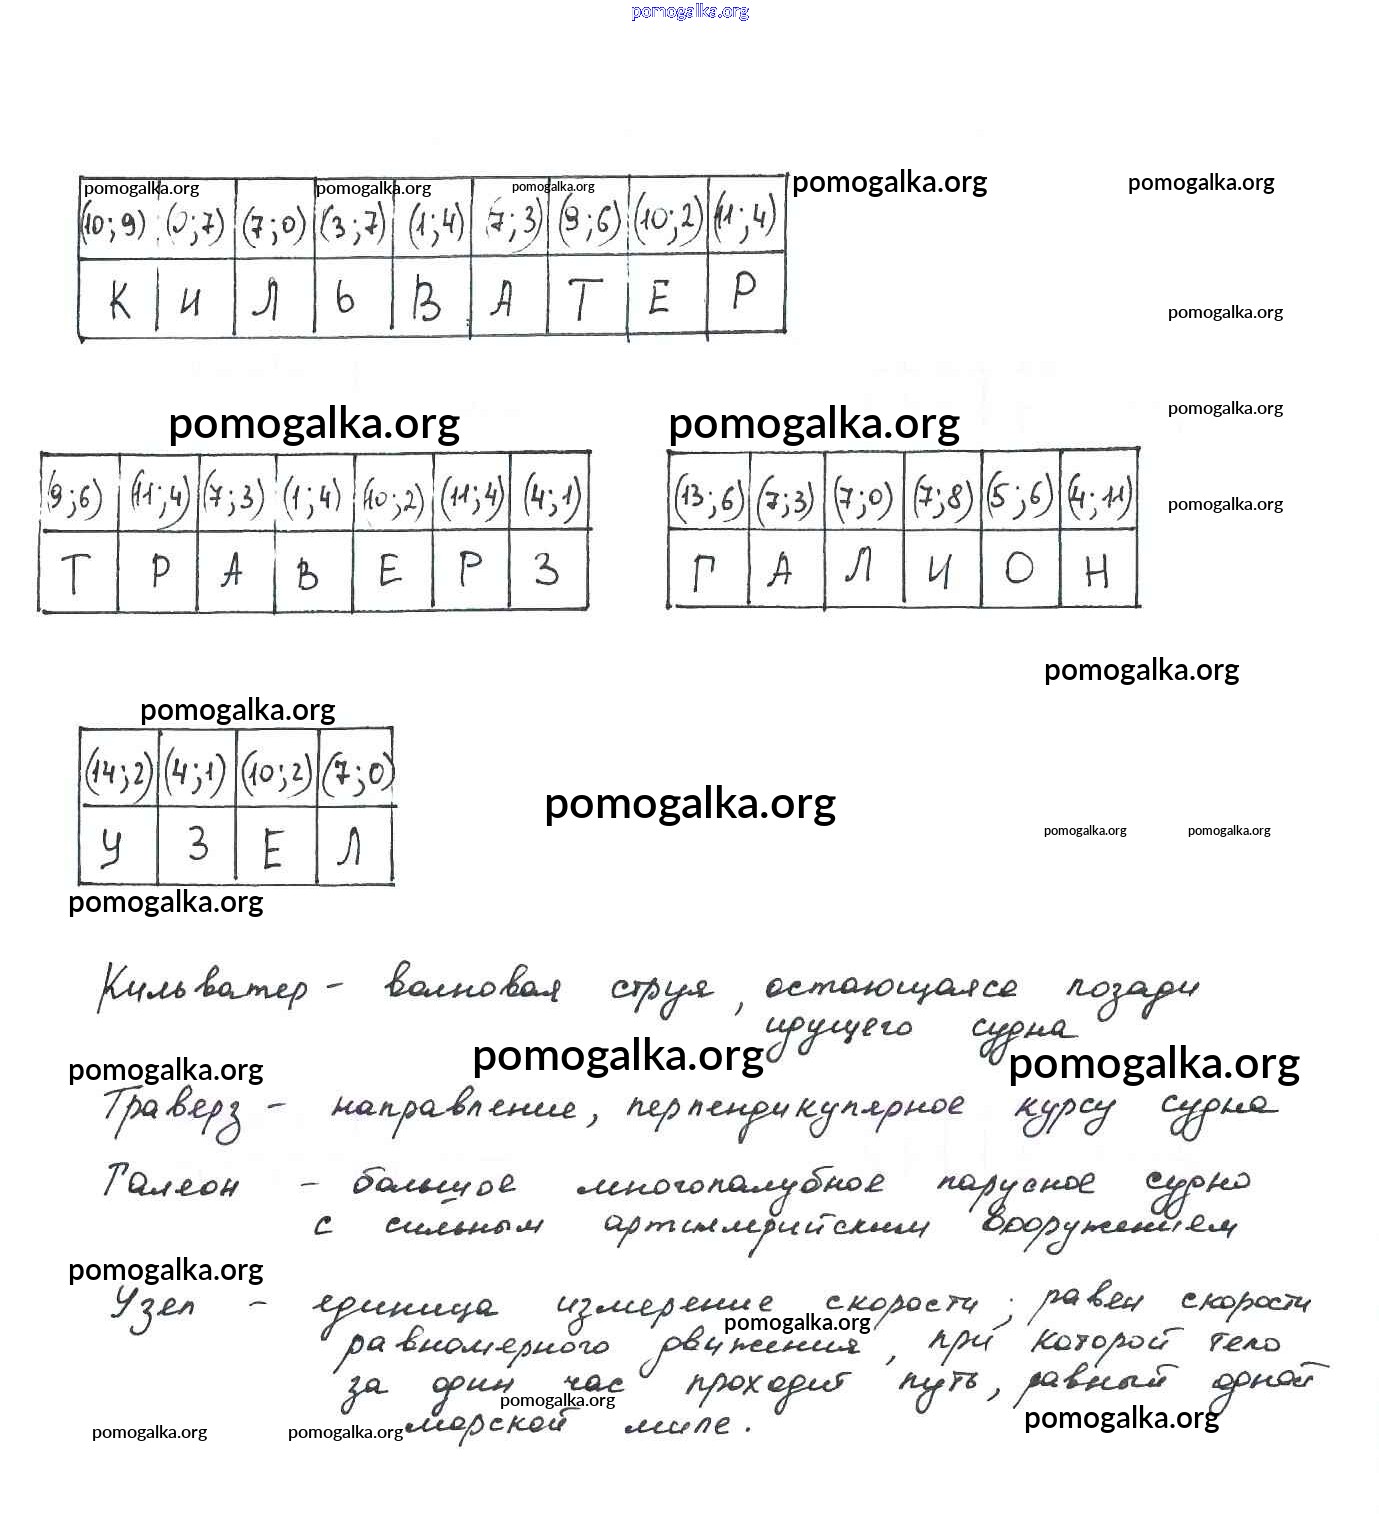 pomogalka.org
pomogalka.org pomogalka.org pomogalka.org pomogalka.org pomogalka.org
(10;9) (0;7) (7;0) (3;7) (1;4) (7;3) (9;6) (10;2) (11;4)
К И Л Ь В А Т Е Р
pomogalka.org
pomogalka.org pomogalka.org pomogalka.org
(9;6) (11;4) (7;3) (1;4) (10;2) (11;4) (4;1)
Т Р А В Е Р З
(13;6) (7;3) (7;0) (7;8) (5;6) (4;11)
Г А Л И О Н
pomogalka.org
pomogalka.org
pomogalka.org
(14;2) (4;1) (10;2) (7;0)
У З Е Л
pomogalka.org
pomogalka.org pomogalka.org
pomogalka.org
Кильватер - волновая струя, остающаяся позади
идущего судна
pomogalka.org pomogalka.org pomogalka.org
Траверз - направление, перпендикулярное курсу судна
Галеон - большое многопалубное парусное судно
с сильным артиллерийским вооружением
pomogalka.org
Узел - единица измерение скорости; равен скорости
pomogalka.org
равномерного движения, при которой тело
за один час проходит путь, равный одной
pomogalka.org pomogalka.org
морской миле.
pomogalka.org pomogalka.org